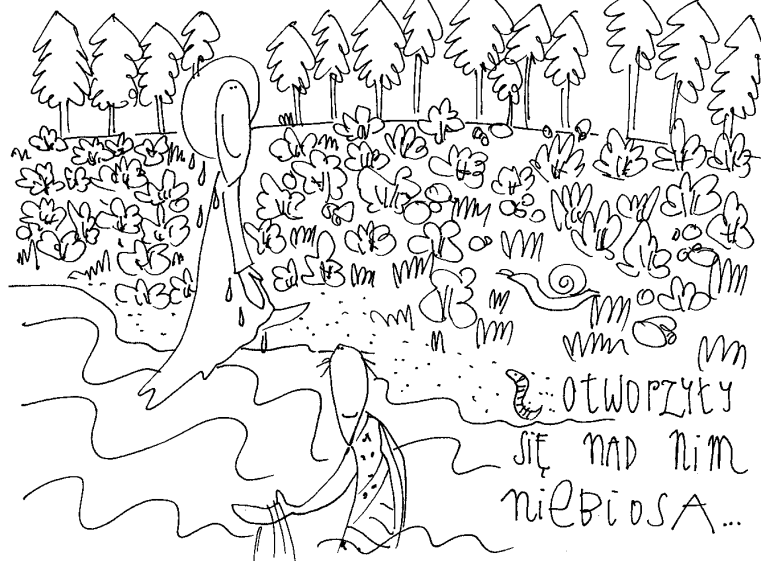 OtWORZYŁY
SIĘ NAD NiM
NiEBiOSA...